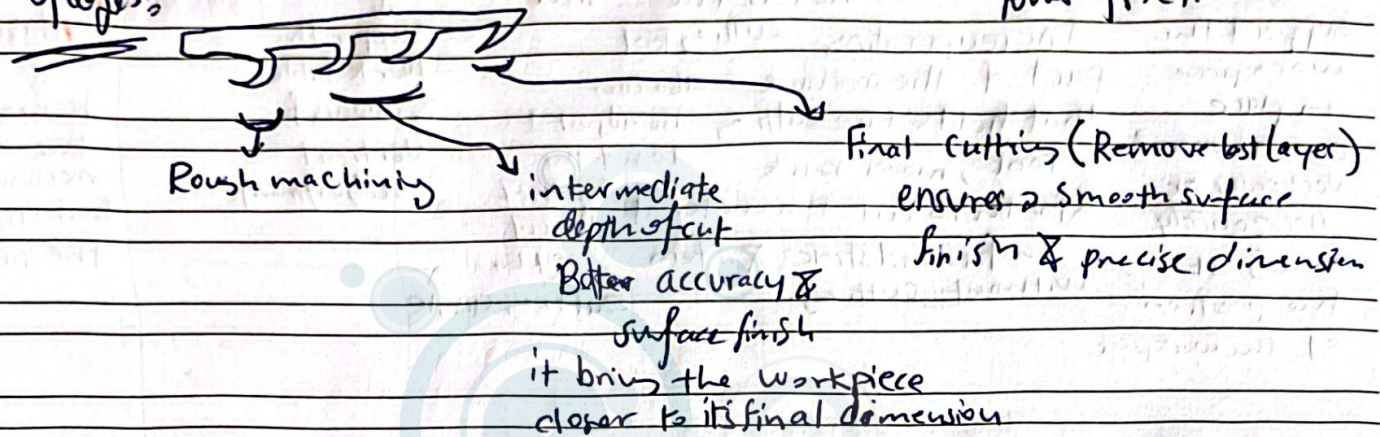 Rough machining
intermediate
depth of cut
Better accuracy &
surface finish
it bring the workpiece
closer to its final dimension
Final Cutting (Remove last layer)
ensures a smooth surface
finish & precise dimension